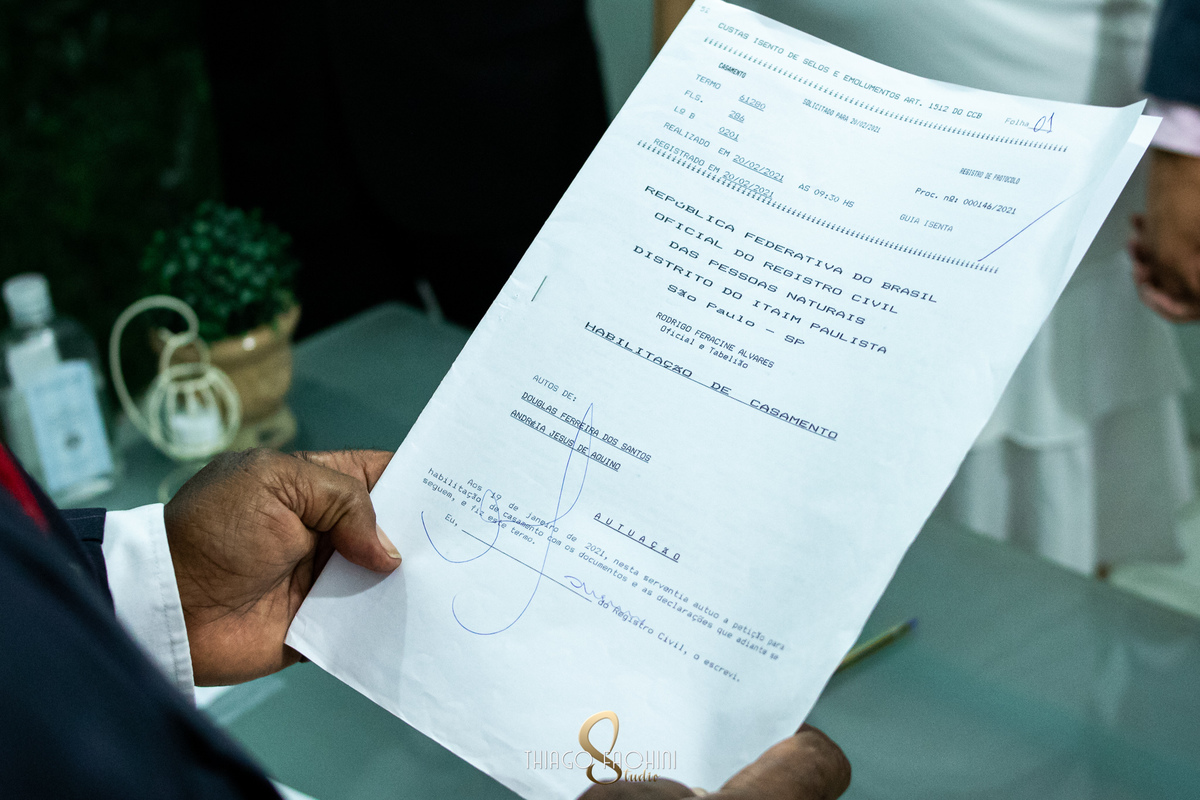 CUSTAS ISENTO DE SELOS E EMOLUMENTOS ART. 1512 DO CCB
Folha 01
CASAMENTO
SOLICITADO PARA 20/02/2021
TERMO 61280
FLS. 286
Lº B 0201
REALIZADO EM 20/02/2021 ÀS 09:30 HS
REGISTRADO EM 20/02/2021
REGISTRO DE PROTOCOLO
Proc. nº: 000146/2021
GUIA ISENTA
REPÚBLICA FEDERATIVA DO BRASIL
OFICIAL DO REGISTRO CIVIL
DAS PESSOAS NATURAIS
DISTRITO DO ITAIM PAULISTA
São Paulo - SP
RODRIGO FERACINE ALVARES
Oficial e Tabelião
HABILITAÇÃO DE CASAMENTO
AUTOS DE:
DOUGLAS FERREIRA DOS SANTOS
ANDRÉIA JESUS DE AQUINO
AUTUAÇÃO
Aos 19 de janeiro de 2021, nesta serventia autuo a petição para
habilitação de casamento com os documentos e as declarações que adiante se
seguem, e fiz este termo.
Eu, do Registro Civil, o escrevi.
THIAGO FAOHINI
Studio